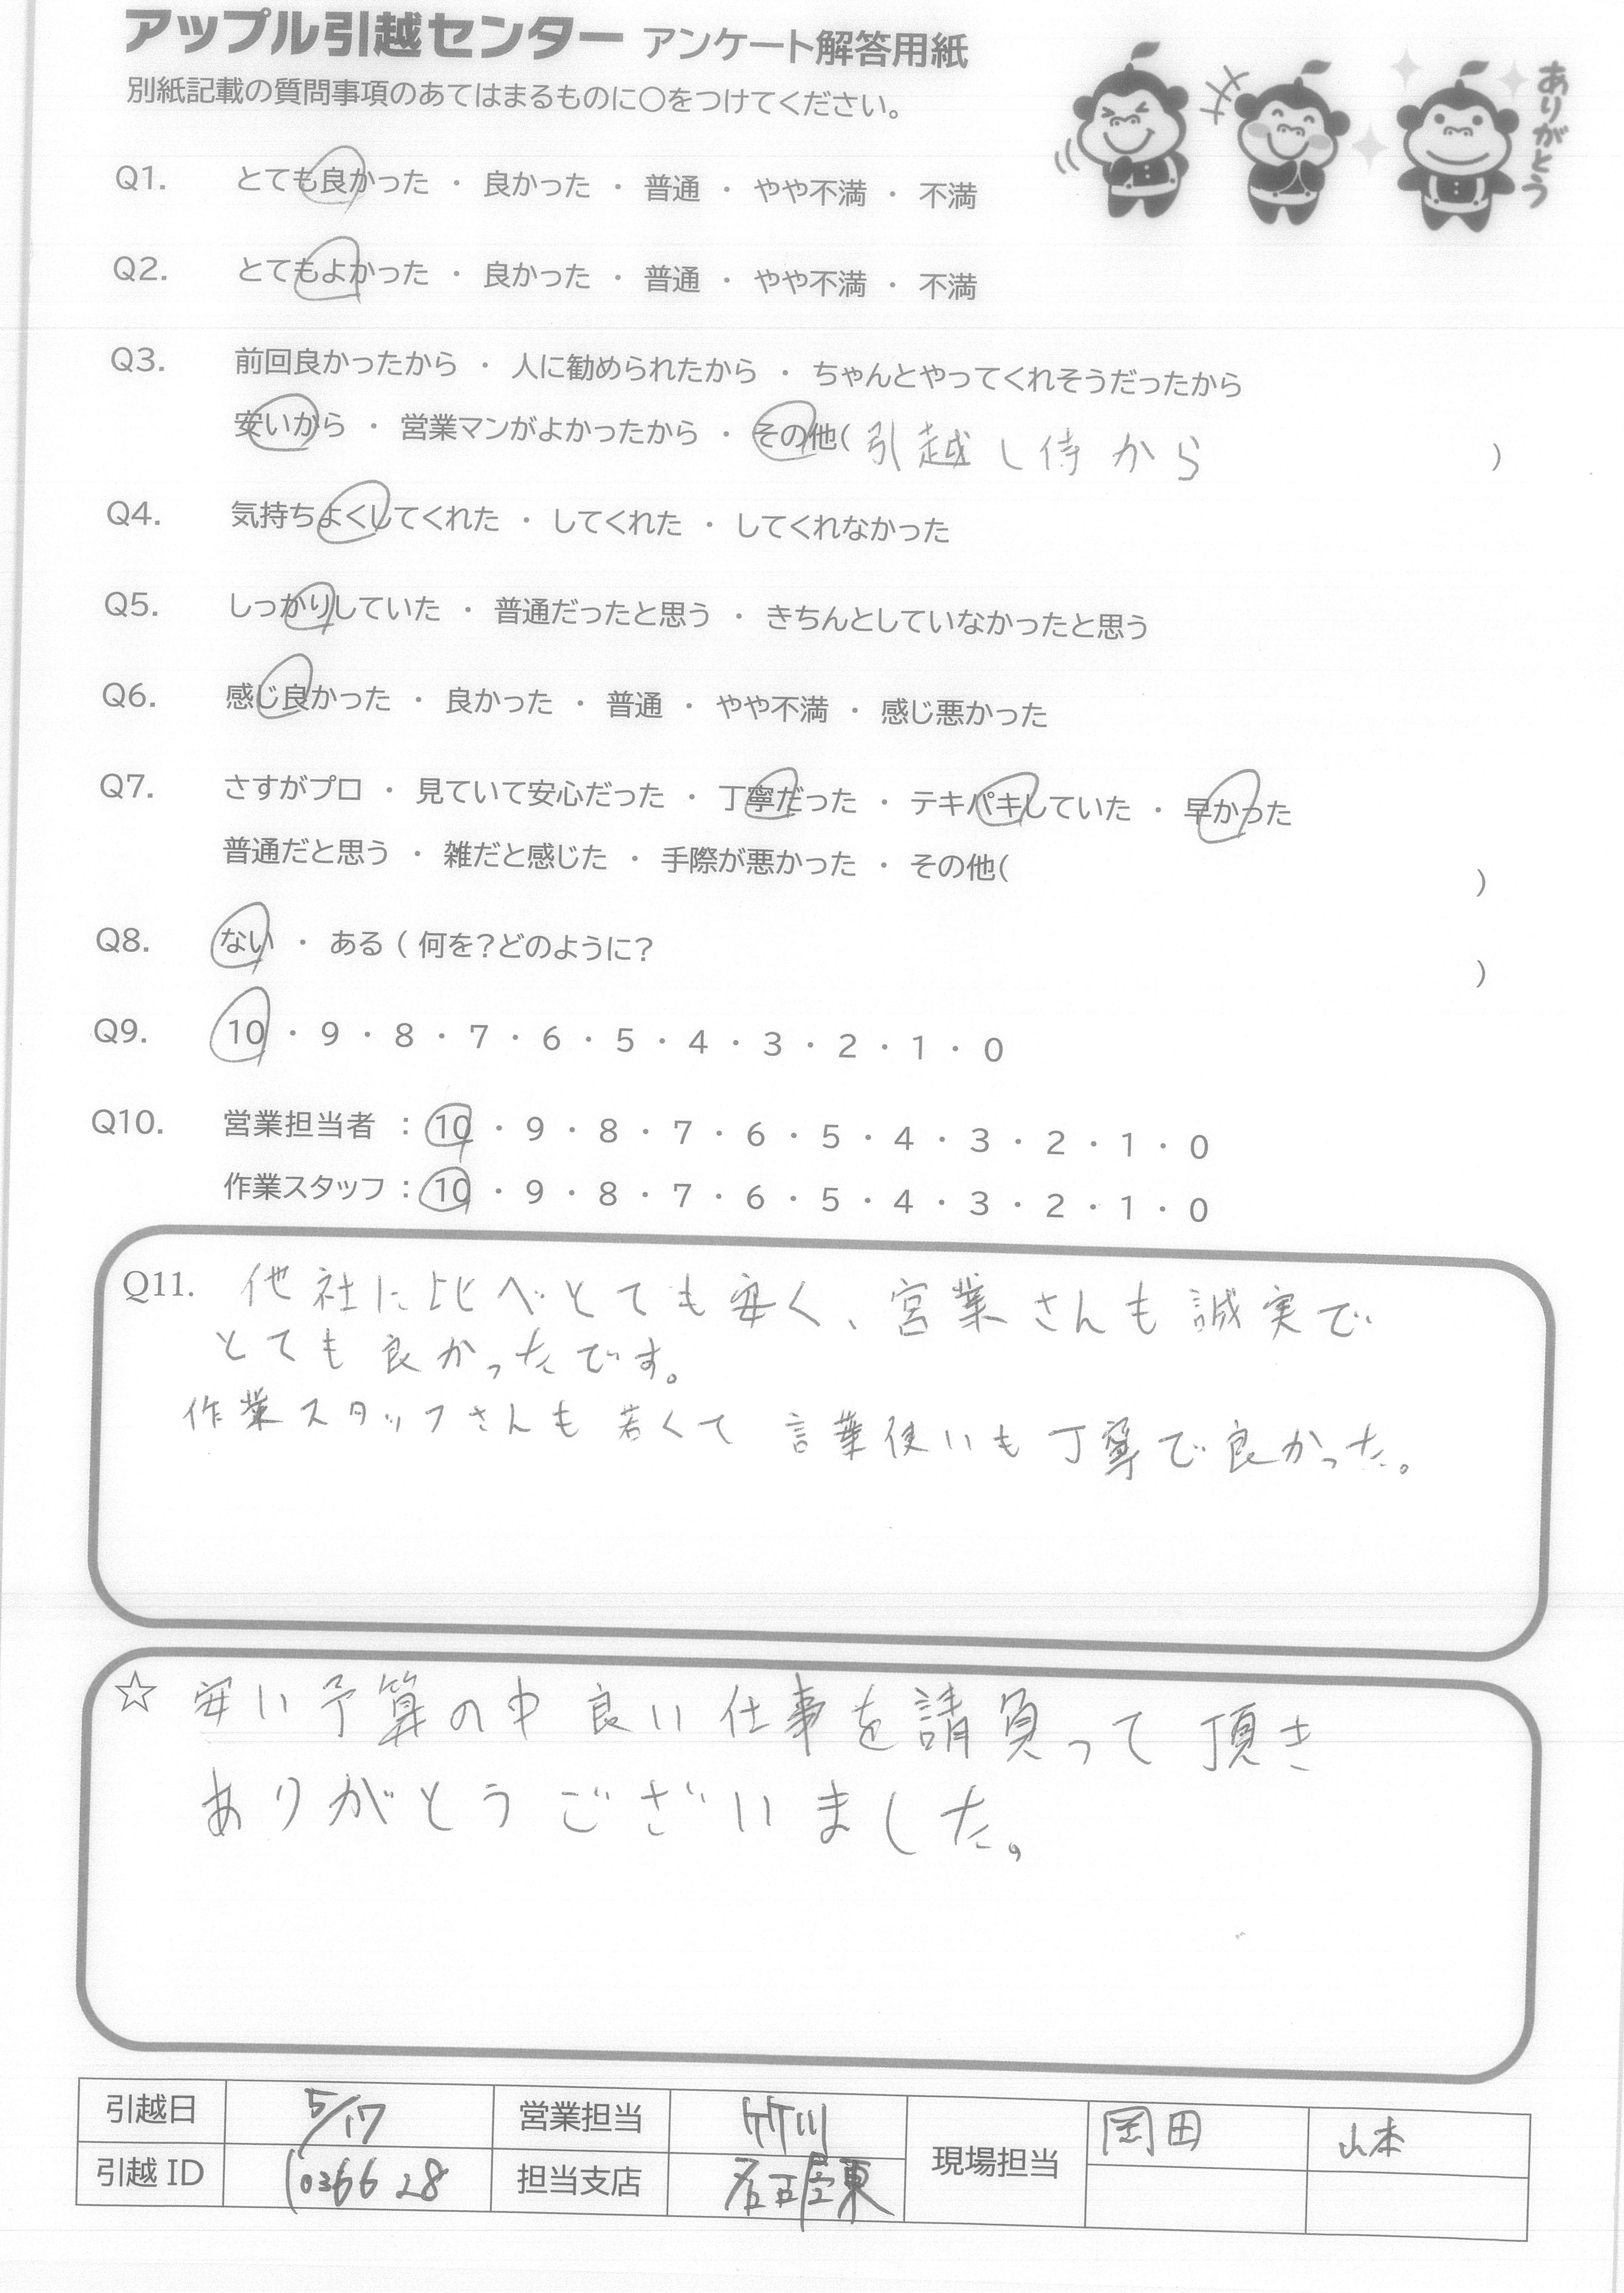 アップル引越センター アンケート解答用紙
別紙記載の質問事項のあてはまるものに〇をつけてください。
ありがとう
Q1. とても良かった ・ 良かった ・ 普通 ・ やや不満 ・ 不満
Q2. とてもよかった ・ 良かった ・ 普通 ・ やや不満 ・ 不満
Q3. 前回良かったから ・ 人に勧められたから ・ ちゃんとやってくれそうだったから
安いから ・ 営業マンがよかったから ・ その他( 引越し侍から )
Q4. 気持ちよくしてくれた ・ してくれた ・ してくれなかった
Q5. しっかりしていた ・ 普通だったと思う ・ きちんとしていなかったと思う
Q6. 感じ良かった ・ 良かった ・ 普通 ・ やや不満 ・ 感じ悪かった
Q7. さすがプロ ・ 見ていて安心だった ・ 丁寧だった ・ テキパキしていた ・ 早かった
普通だと思う ・ 雑だと感じた ・ 手際が悪かった ・ その他( )
Q8. ない ・ ある ( 何を?どのように? )
Q9. 10 ・ 9 ・ 8 ・ 7 ・ 6 ・ 5 ・ 4 ・ 3 ・ 2 ・ 1 ・ 0
Q10. 営業担当者 : 10 ・ 9 ・ 8 ・ 7 ・ 6 ・ 5 ・ 4 ・ 3 ・ 2 ・ 1 ・ 0
作業スタッフ : 10 ・ 9 ・ 8 ・ 7 ・ 6 ・ 5 ・ 4 ・ 3 ・ 2 ・ 1 ・ 0
Q11. 他社に比べとても安く、営業さんも誠実で
とても良かったです。
作業スタッフさんも若くて 言葉使いも丁寧で良かった。
☆ 安い予算の中良い仕事を請負って頂き
ありがとうございました。
引越日 5/17 営業担当 竹川 現場担当 岡田 山本
引越ID 1036628 担当支店 名古屋東